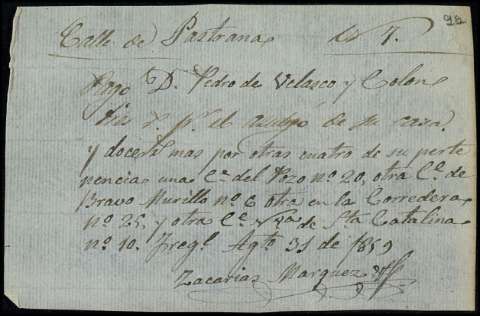 92
Calle de Pastrana nº 7.
Pago D. Pedro de Velasco y Colon
tres rˢ pʳ el aseo de su casa
y doce rˢ mas por otras cuatro de su perte
nencia una Cª del Pozo nº 20, otra Cª de
Bravo Murillo nº 6 otra en la Corredera
nº 25, y otra Cª de Sta Catalina
nº 10. Fregˡ Agᵗᵒ 31 de 1859
Zacarias Marquez